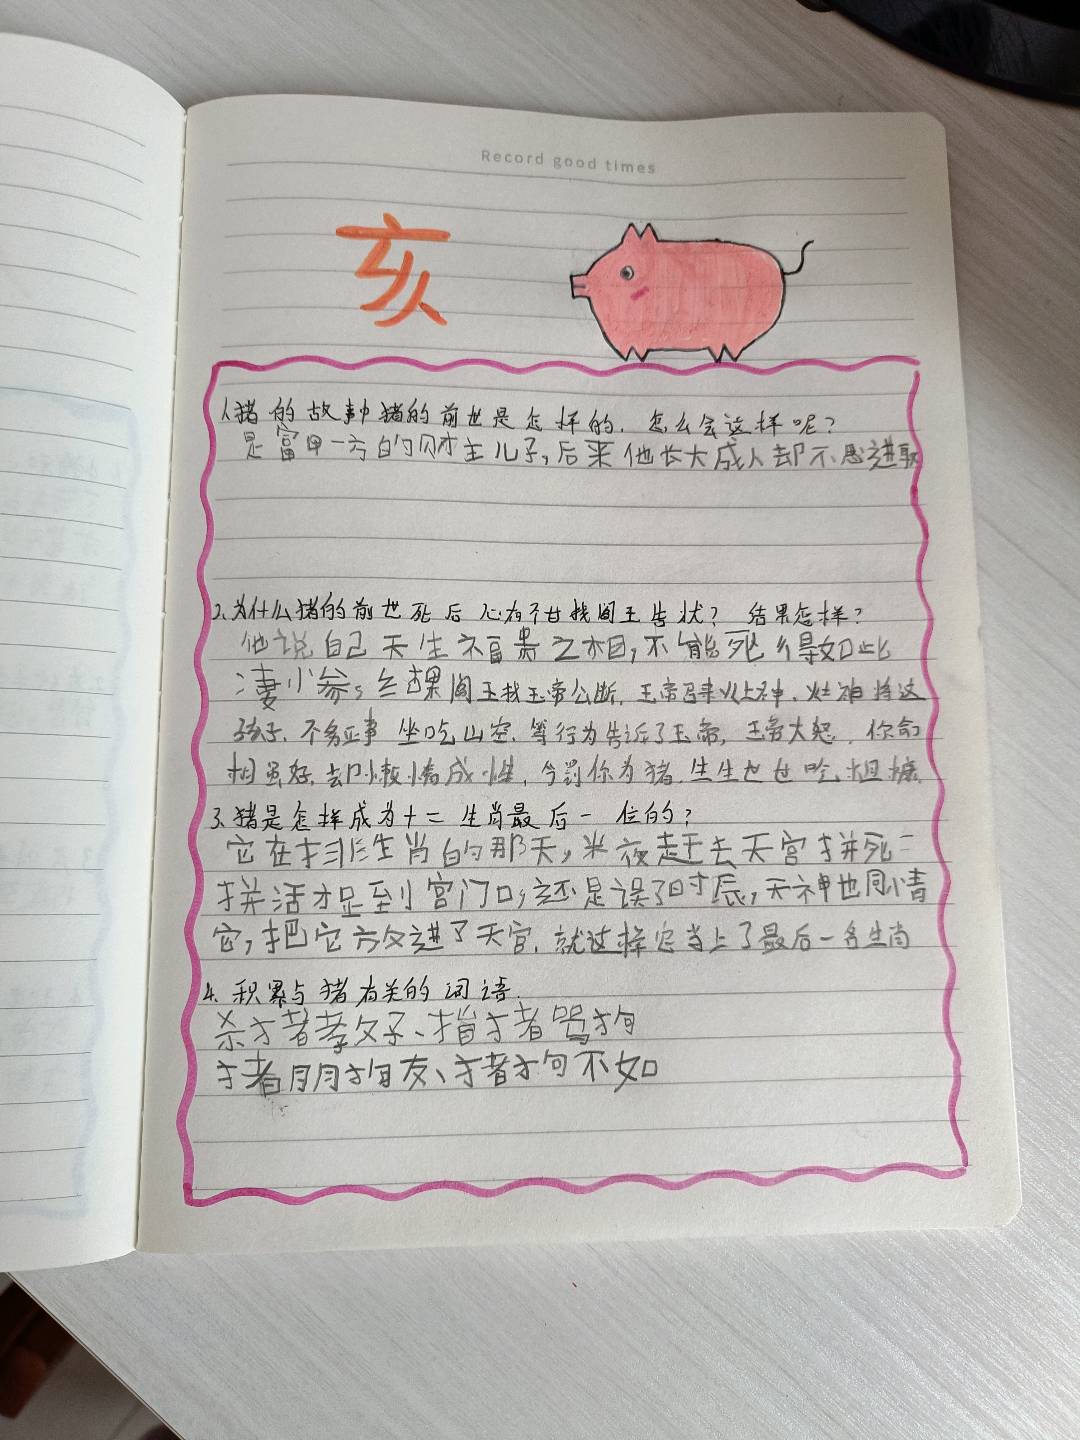 Record good times
亥
1.猪的故事中猪的前世是怎样的.怎么会这样呢?
是富甲一方的财主儿子,后来他长大成人却不思进取
2.为什么猪的前世死后心有不甘找阎王告状? 结果怎样?
他说自己天生福贵之相,不能死得如此
凄惨。结果阎王找玉帝公断.玉帝召来灶神.灶神将这
孩子.不务正事 坐吃山空.等行为告诉了玉帝,玉帝大怒.你命
相虽好.却懒惰成性.今罚你为猪.生生世世吃粗糠
3.猪是怎样成为十二生肖最后一位的?
它在排生肖的那天,半夜赶去天宫拼死二
拼活才足到宫门口,还是误了时辰,天神也同情
它,把它放进了天宫.就这样它当上了最后一名生肖
4.积累与猪有关的词语.
杀猪孝父子、指猪骂狗
猪朋狗友、猪狗不如